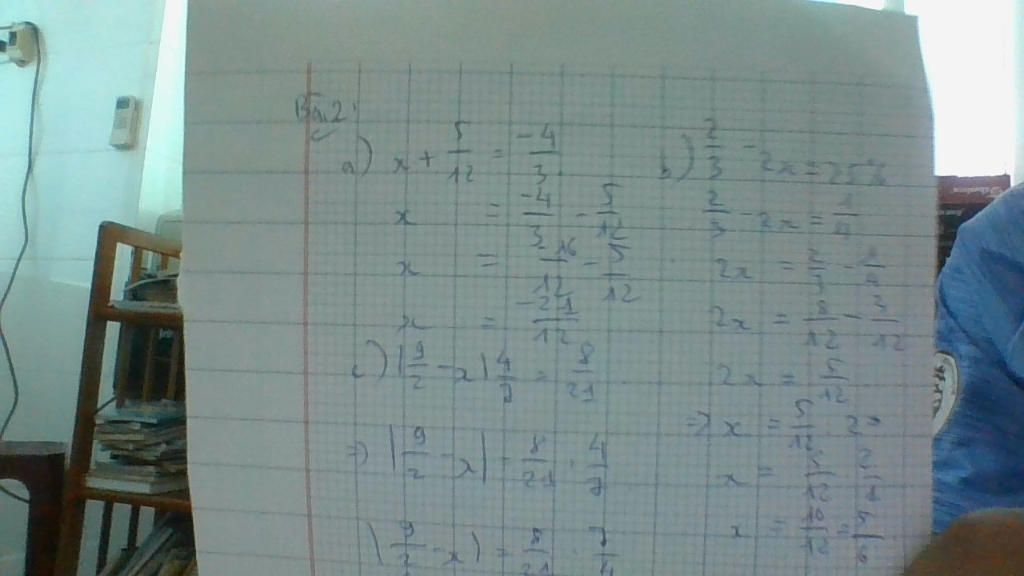 Bài 2:
a) x + 5/12 = -4/3
x = -4/3 - 5/12
x = -16/12 - 5/12
x = -21/12
c) |9/2 - x| 4/7 = 8/21
=> |9/2 - x| = 8/21 : 4/7
|9/2 - x| = 8/21 . 7/4
b) 2/3 - 2x = 25%
2/3 - 2x = 1/4
2x = 2/3 - 1/4
2x = 8/12 - 3/12
2x = 5/12
=> x = 5/12 2
x = 5/12 2/1
x = 10/12 = 5/6